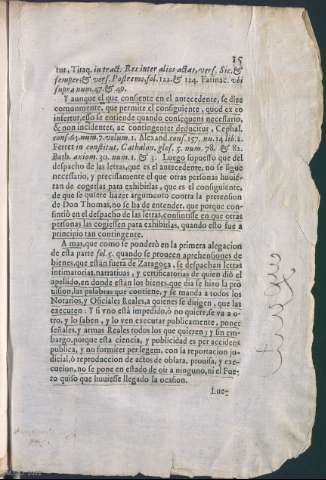 15
tus, Tiraq. in tract. Res inter alios actas, vers. Sic. &
semper & vers. Postremo, fol. 122. & 124. Farinac. vbi
supra num. 47. & 49.
Y aunque el que consiente en el antecedente, se dize
comunmente, que permite el consiguiente, quod ex eo
infertur, esso se entiende quando consequens necessario,
& non incidenter, ac contingenter deducitur, Cephal.
cons. 63. num. 7. volum. 1. Alexand. cons. 157. nu. 14. lib. 2.
Ferret in constitut. Cathalon. glos. 5. num. 78. & 82.
Barb. axiom. 30. num. 1. & 3. Luego supuesto que del
despacho de las letras, que es el antecedente, no se sigue
necessario, y precisamente el que otras personas huuiessen
de cogerlas para exhibirlas, que es el consiguiente,
de que se quiere sacar argumento contra la pretension
de Don Thomas, no se ha de entender, que porque consintiò
en el despacho de las letras, consintiesse en que otras
personas las cogiessen para exhibirlas, quando esto fue a
principio tan contingente.
A mas, que como se ponderò en la primera alegacion
de esta parte fol. 5. quando se proueen aprehensiones de
bienes, que estàn fuera de Zaragoça, se despachan letras
intimatorias, narratiuas, y certificatorias de quien diò el
apellido, en donde estàn los bienes, que dia se hizo la prouision,
las palabras que contiene, y se manda a todos los
Notarios, y Oficiales Reales, a quienes se dirigen, que las
executen: Y si vno està impedido, ò no quiere, se va a otro,
y lo saben, y lo ven executar publicamente, poner
señales, y armas Reales todos los que quieren; y sin embargo,
porque esta ciencia, y publicidad es per accidens
publica, y no formiter per legem, con la reportacion judicial,
ò reproduccion de actos de oblata, prouisa, y execucion,
no se pone en estado de oir a ninguno, ni el Fuero
quiso que huuiesse llegado la ocasion.
Lue-